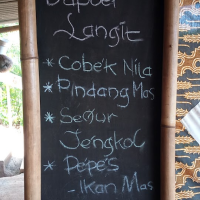 Dapoer
Langit
* Cobek Nila
* Pindang Mas
* Seour
Jengkol
* Pepes
- Ikan Mas